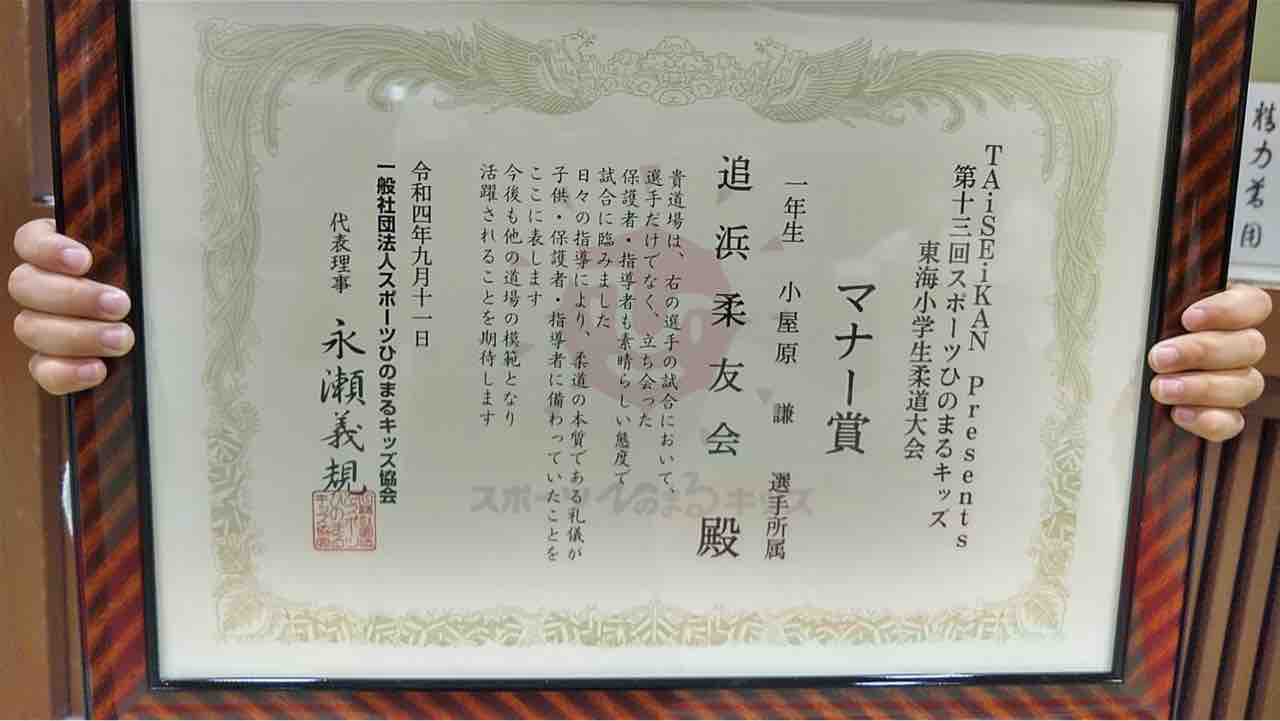 TAiSEiKAN Presents
第十三回スポーツひのまるキッズ
東海小学生柔道大会
マナー賞
一年生 小屋原 謙 選手所属
追浜柔友会 殿
貴道場は、右の選手の試合において、
選手だけでなく、立ち会った
保護者・指導者も素晴らしい態度で
試合に臨みました
日々の指導により、柔道の本質である礼儀が
子供・保護者・指導者に備わっていたことを
ここに表します
今後も他の道場の模範となり
活躍されることを期待します
令和四年九月十一日
一般社団法人スポーツひのまるキッズ協会
代表理事 永瀬義規
スポーツひのまるキッズ
精力善用